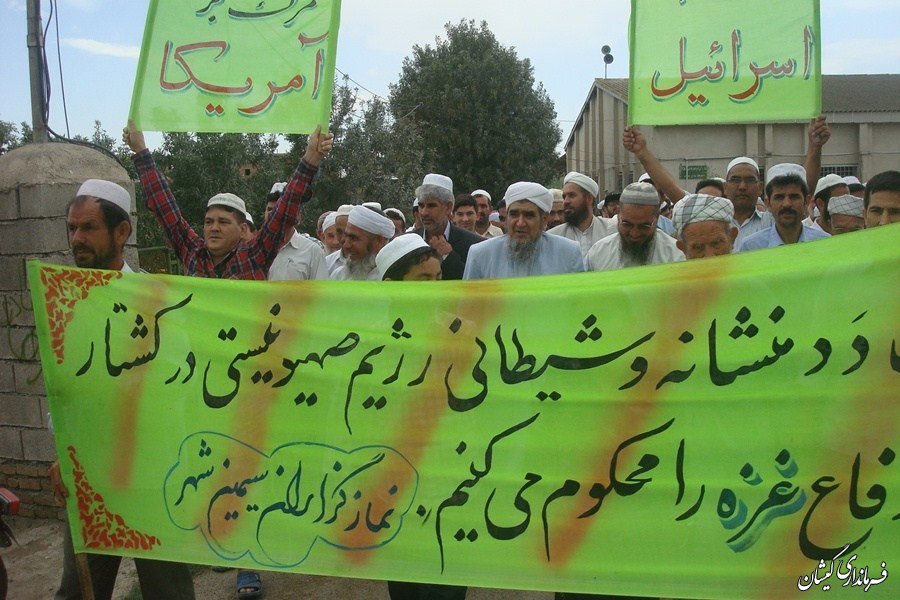 مرگ بر
آمریکا
اسرائیل
ددمنشانه و شیطانی رژیم صهیونیستی در کشتار
فاع غزه را محکوم می کنیم.
نمازگزاران سیمین شهر
فرمانداری گمیشان